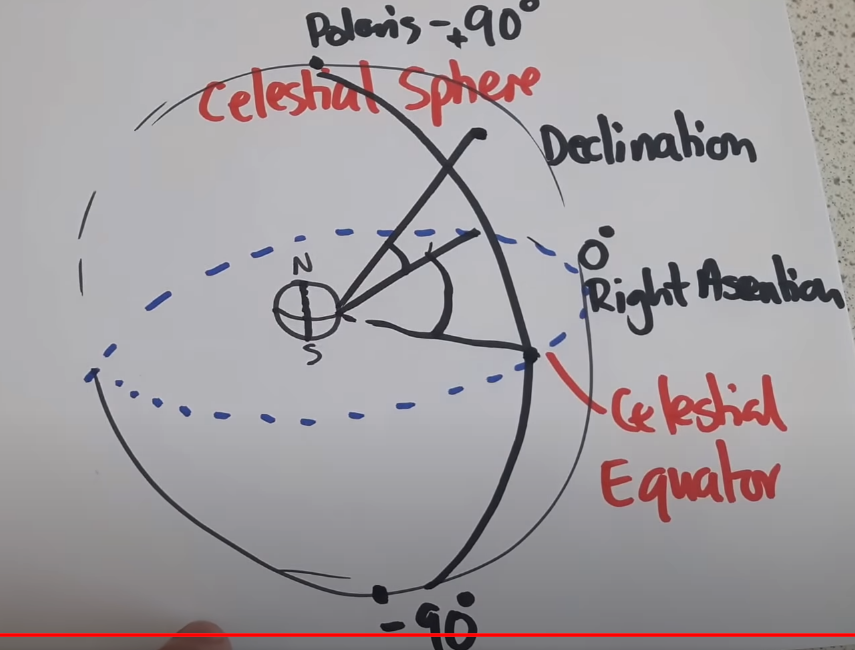 Polaris - +90°
Celestial Sphere
Declination
0°
Right Asention
N
S
Celestial
Equator
-90°